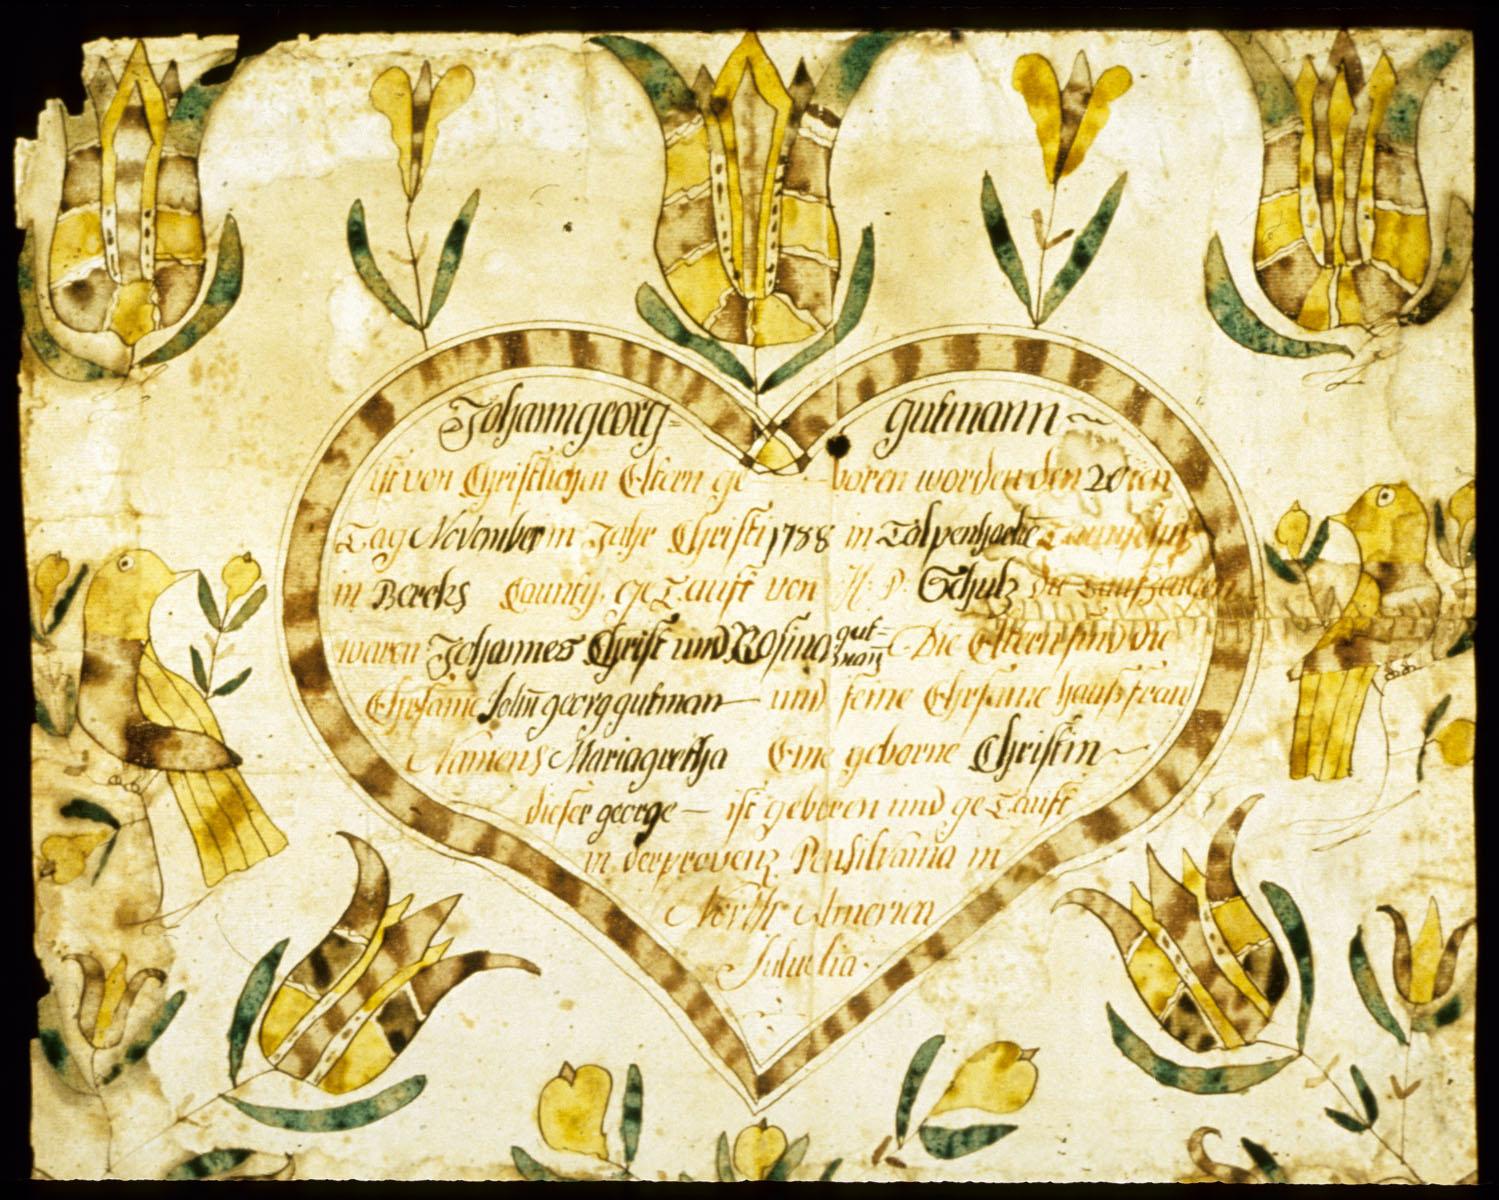 Johann georg= gutmann
ist von Christlichen Eltern ge boren worden den 20ten
Tag November im Jahr Christi 1788 in Tolpenhacke Taunschip
in Beerks County, ge Tauft von H. P. Schulz die Taufzeugen
waren Johannes Christ und Rosina gut=man̄ Die Eltern sind die
Ehrsame John̄ georg gutman und seine Ehrsame haußfrau
Namens Maria gretha Eine geborne Christin
dieser george — ist geboren und ge Tauft
in der provenz Pensilvania in
North America